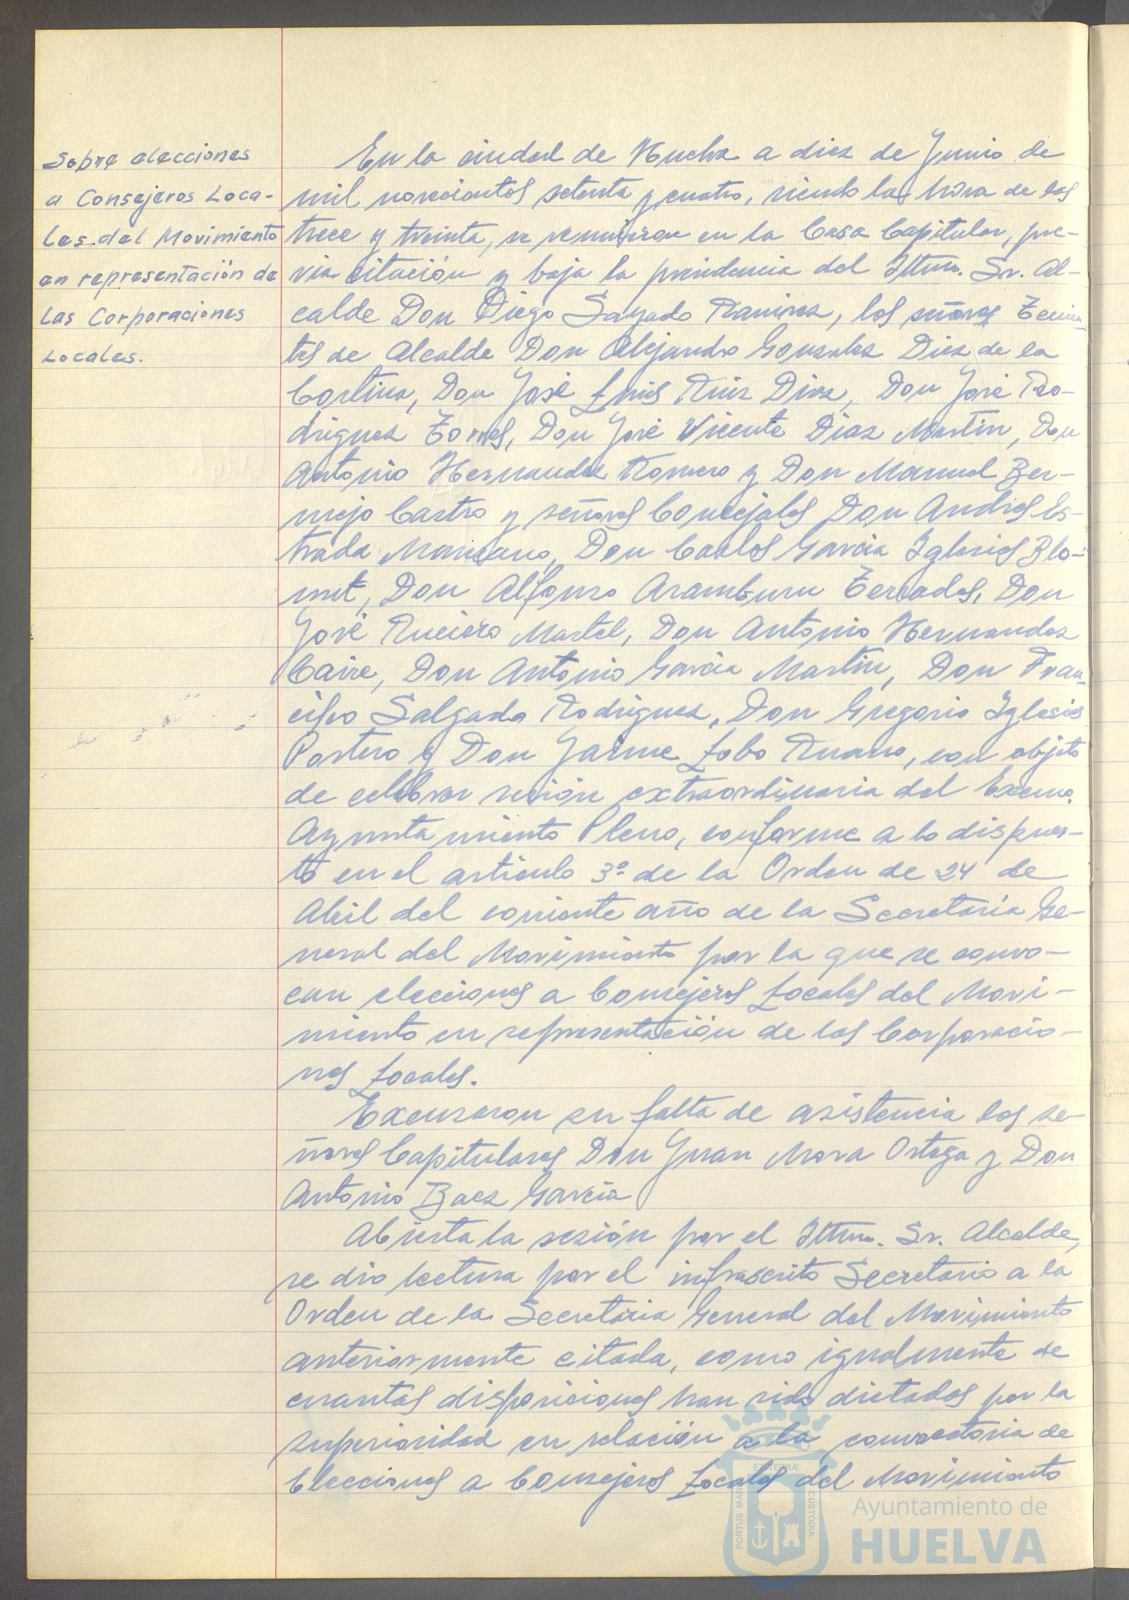 Sobre elecciones
a Consejeros Loca-
les del Movimiento
en representación de
las Corporaciones
Locales.
En la ciudad de Huelva a diez de Junio de
mil novecientos setenta y cuatro, siendo la hora de las
trece y treinta, se reunieron en la Casa Capitular, pre-
via citación y bajo la presidencia del Iltmo. Sr. Al-
calde Don Diego Sayago Ramirez, los señores Tenien-
tes de Alcalde Don Alejandro Gonzalez Diez de la
Cortina, Don José Luis Ruiz Diaz, Don José Ro-
driguez Torres, Don José Vicente Diaz Martin, Don
Antonio Hernandez Romero y Don Manuel Ber-
mejo Castro y señores Concejales Don Andres Es-
trada Manzano, Don Carlos Garcia Iglesias Blo-
mt, Don Alfonso Aramburu Terrades, Don
José Ruciero Martel, Don Antonio Hernandez
Caire, Don Antonio Garcia Martin, Don Fran-
cisco Salgado Rodriguez, Don Gregorio Iglesias
Portero y Don Jaime Lobo Ruano, con objeto
de celebrar sesión extraordinaria del Excmo.
Ayuntamiento Pleno, conforme a lo dispues-
to en el articulo 3º de la Orden de 24 de
Abril del corriente año de la Secretaria Ge-
neral del Movimiento por la que se convo-
can elecciones a Consejeros Locales del Movi-
miento en representación de las Corporacio-
nes Locales.
Excusaron su falta de asistencia los se-
ñores Capitulares Don Juan Mora Ortega y Don
Antonio Baez Garcia
Abierta la sesión por el Iltmo. Sr. Alcalde,
se dio lectura por el infrascrito Secretario a la
Orden de la Secretaria General del Movimiento
anteriormente citada, como igualmente de
cuantas disposiciones han sido dictadas por la
superioridad en relación a la convocatoria de
Elecciones a Consejeros Locales del Movimiento
PORTUS MARIS
ET TERRAE
CUSTODIA
Ayuntamiento de
HUELVA